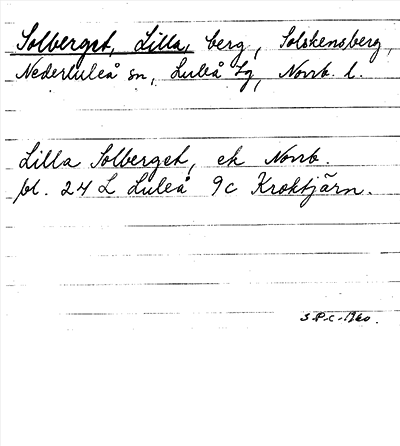 Solberget, Lilla, berg, Solskensberg,
Nederluleå sn, Luleå lg, Norrb. l.
Lilla Solberget, ek Norrb.
bl. 24 L Luleå 9c Kroktjärn.